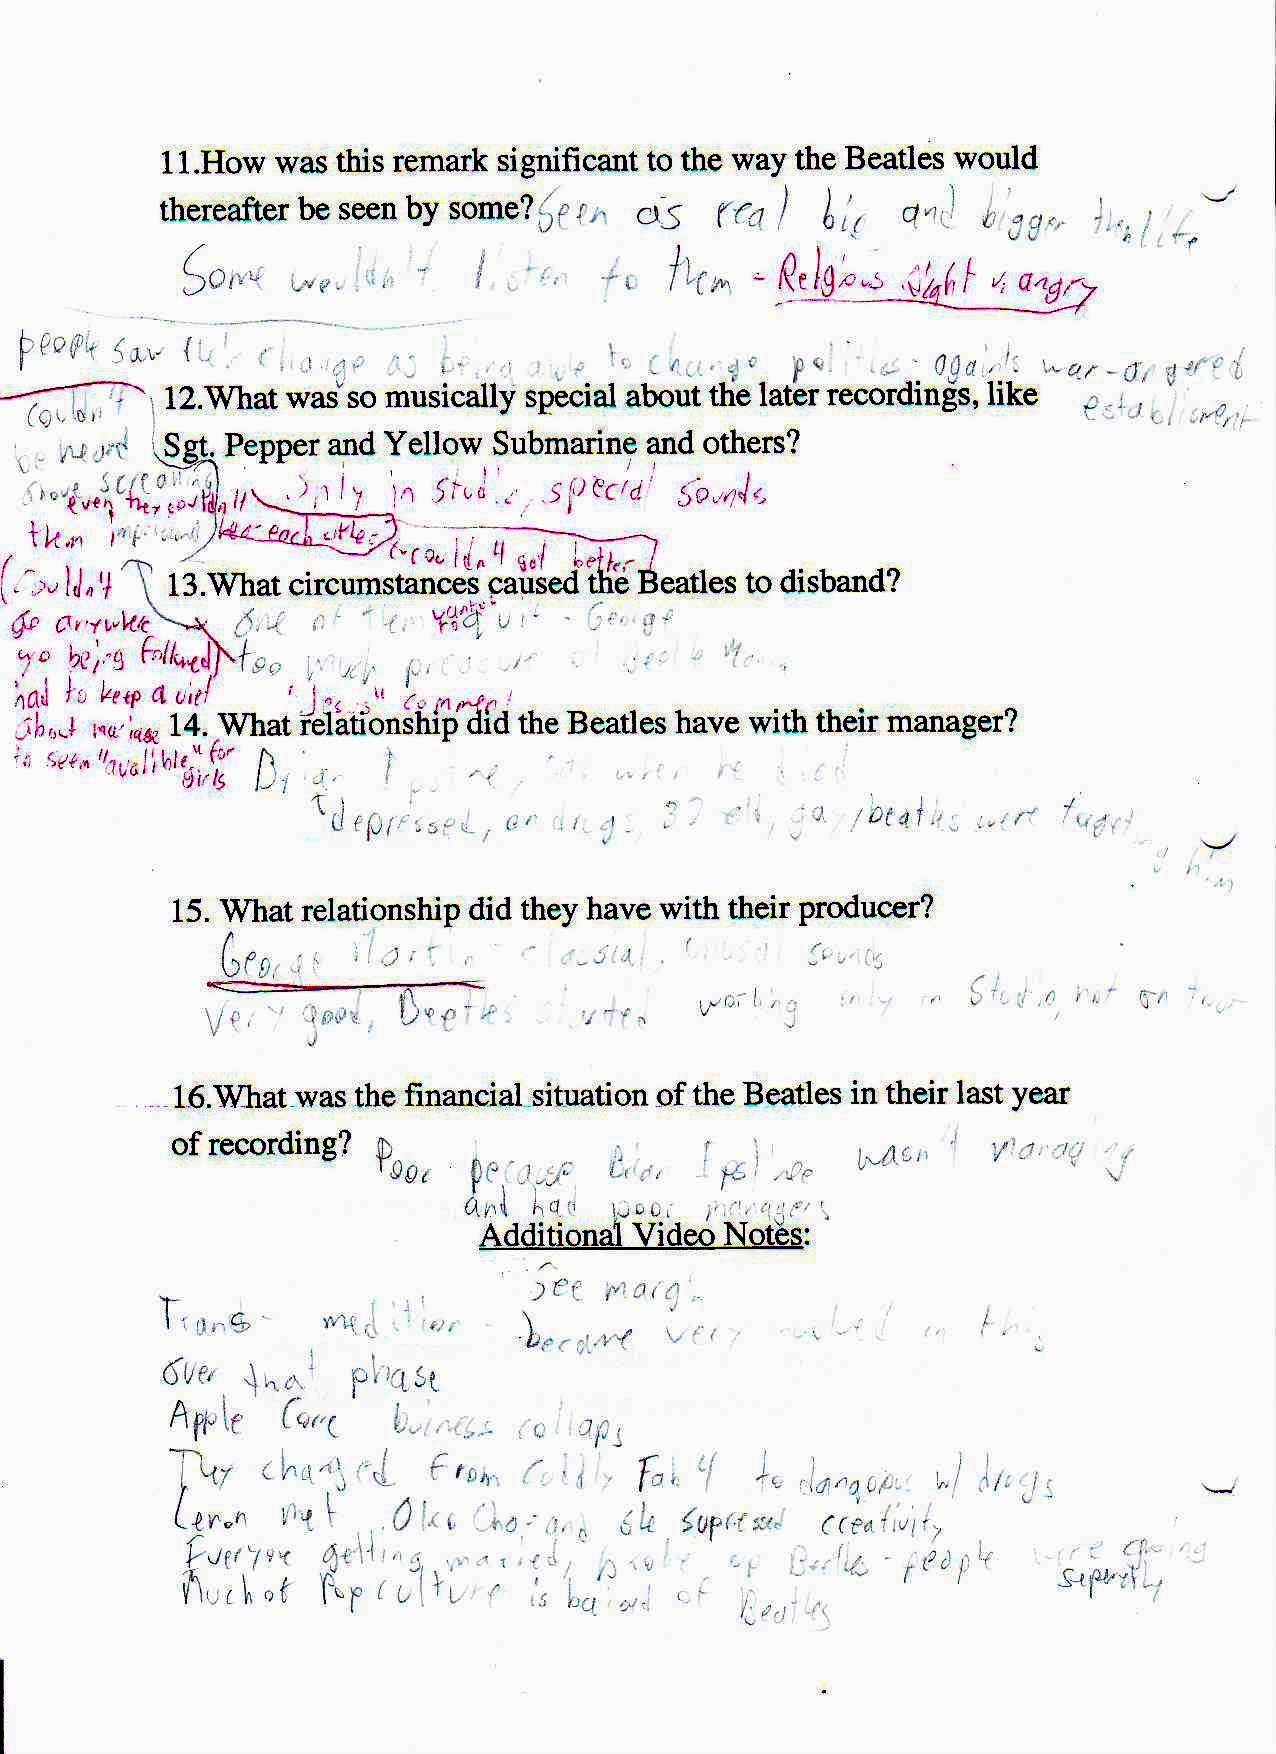 11.How was this remark significant to the way the Beatles would
thereafter be seen by some? Seen as real big and bigger than life
Some wouldn't listen to them - Religious Right v. angry
people saw this change as being able to change politics - againts war - angered
establisment
12.What was so musically special about the later recordings, like
Sgt. Pepper and Yellow Submarine and others?
Couldn't
be heard
above screaming
even they couldn't
hear each other
only in studio, special sounds
them improving
couldn't get better
13.What circumstances caused the Beatles to disband?
Couldn't
go anywhere
w/o being followed
had to keep a
about mariage
to seem "avalible" for
girls
one of them wanted to quit - George
too much pressure of
"Jesus" comment
14. What relationship did the Beatles have with their manager?
when he died
depressed, on drugs, 32 old, gay/beatles were
him
15. What relationship did they have with their producer?
George Martin - classial, unusal sounds
Very good, Beetles started working only in Studio, not on tour
16.What was the financial situation of the Beatles in their last year
of recording? Poor because Brian Epstine wasn't managing
and had poor managers
Additional Video Notes:
See margin
Trans - medition - became very involved in this
over that phase
Apple Core buiness collaps
They changed from Fab 4 to dangous w/ drugs
Lenon met and she supressed creativity
Everyone getting married, broke up Beetles - people were going
seperetly
Much of Pop culture is baised of Beatles